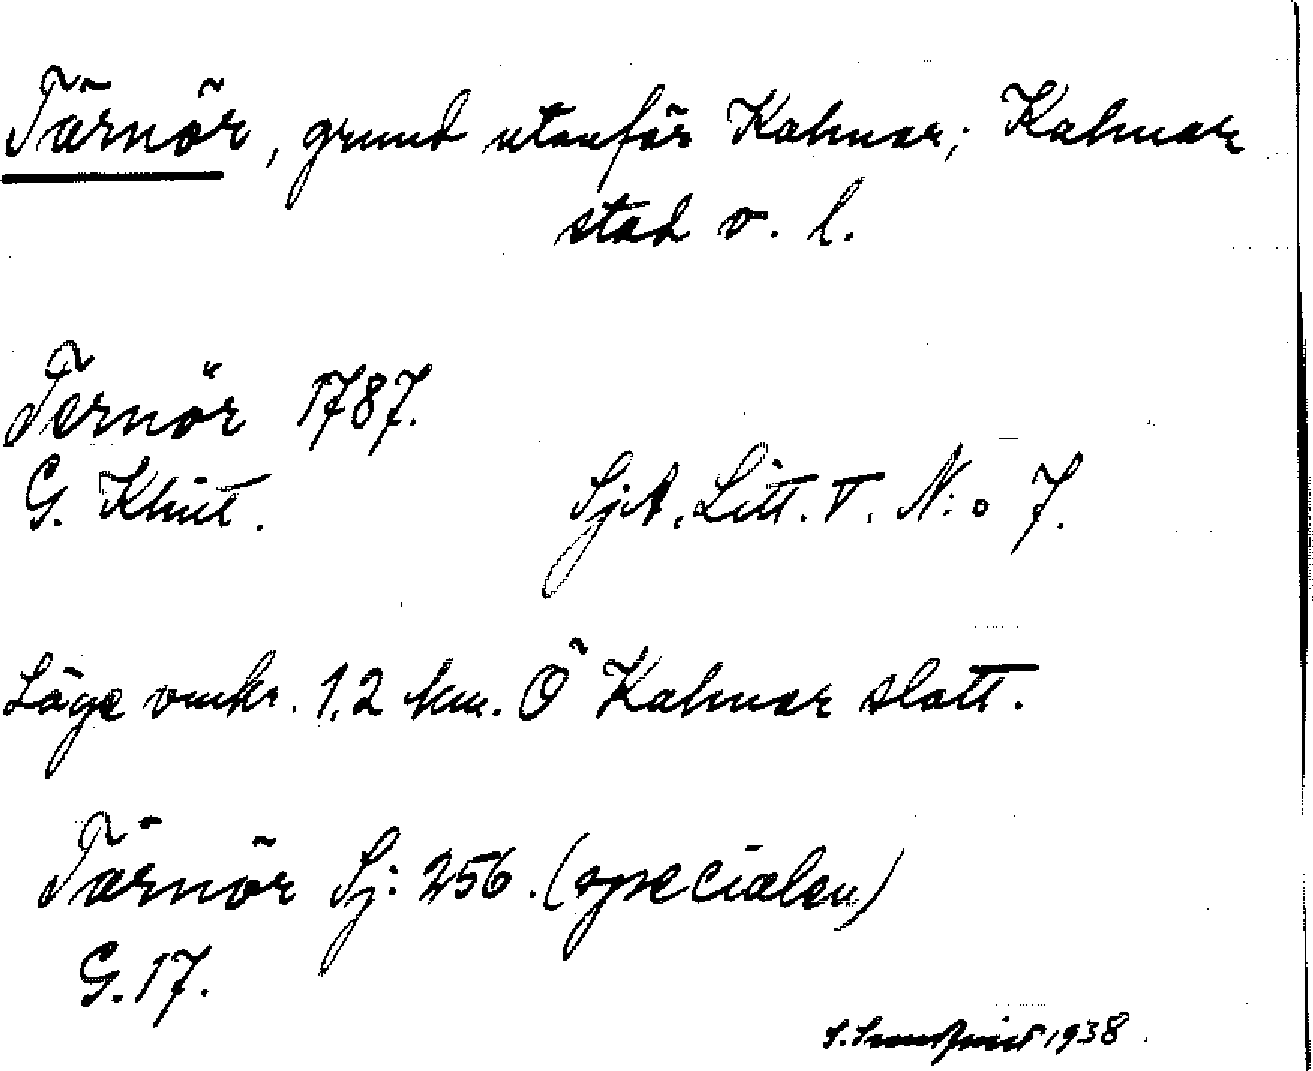 Tärnör, grund utanför Kalmar; Kalmar
stad v. l.
Ternör 1787.
G. Klint. SjA. Litt. V. N:o 7.
Läge omkr. 1,2 km. Ö Kalmar slott.
Tärnör Sj: 256. (specialen)
G. 17.
1938